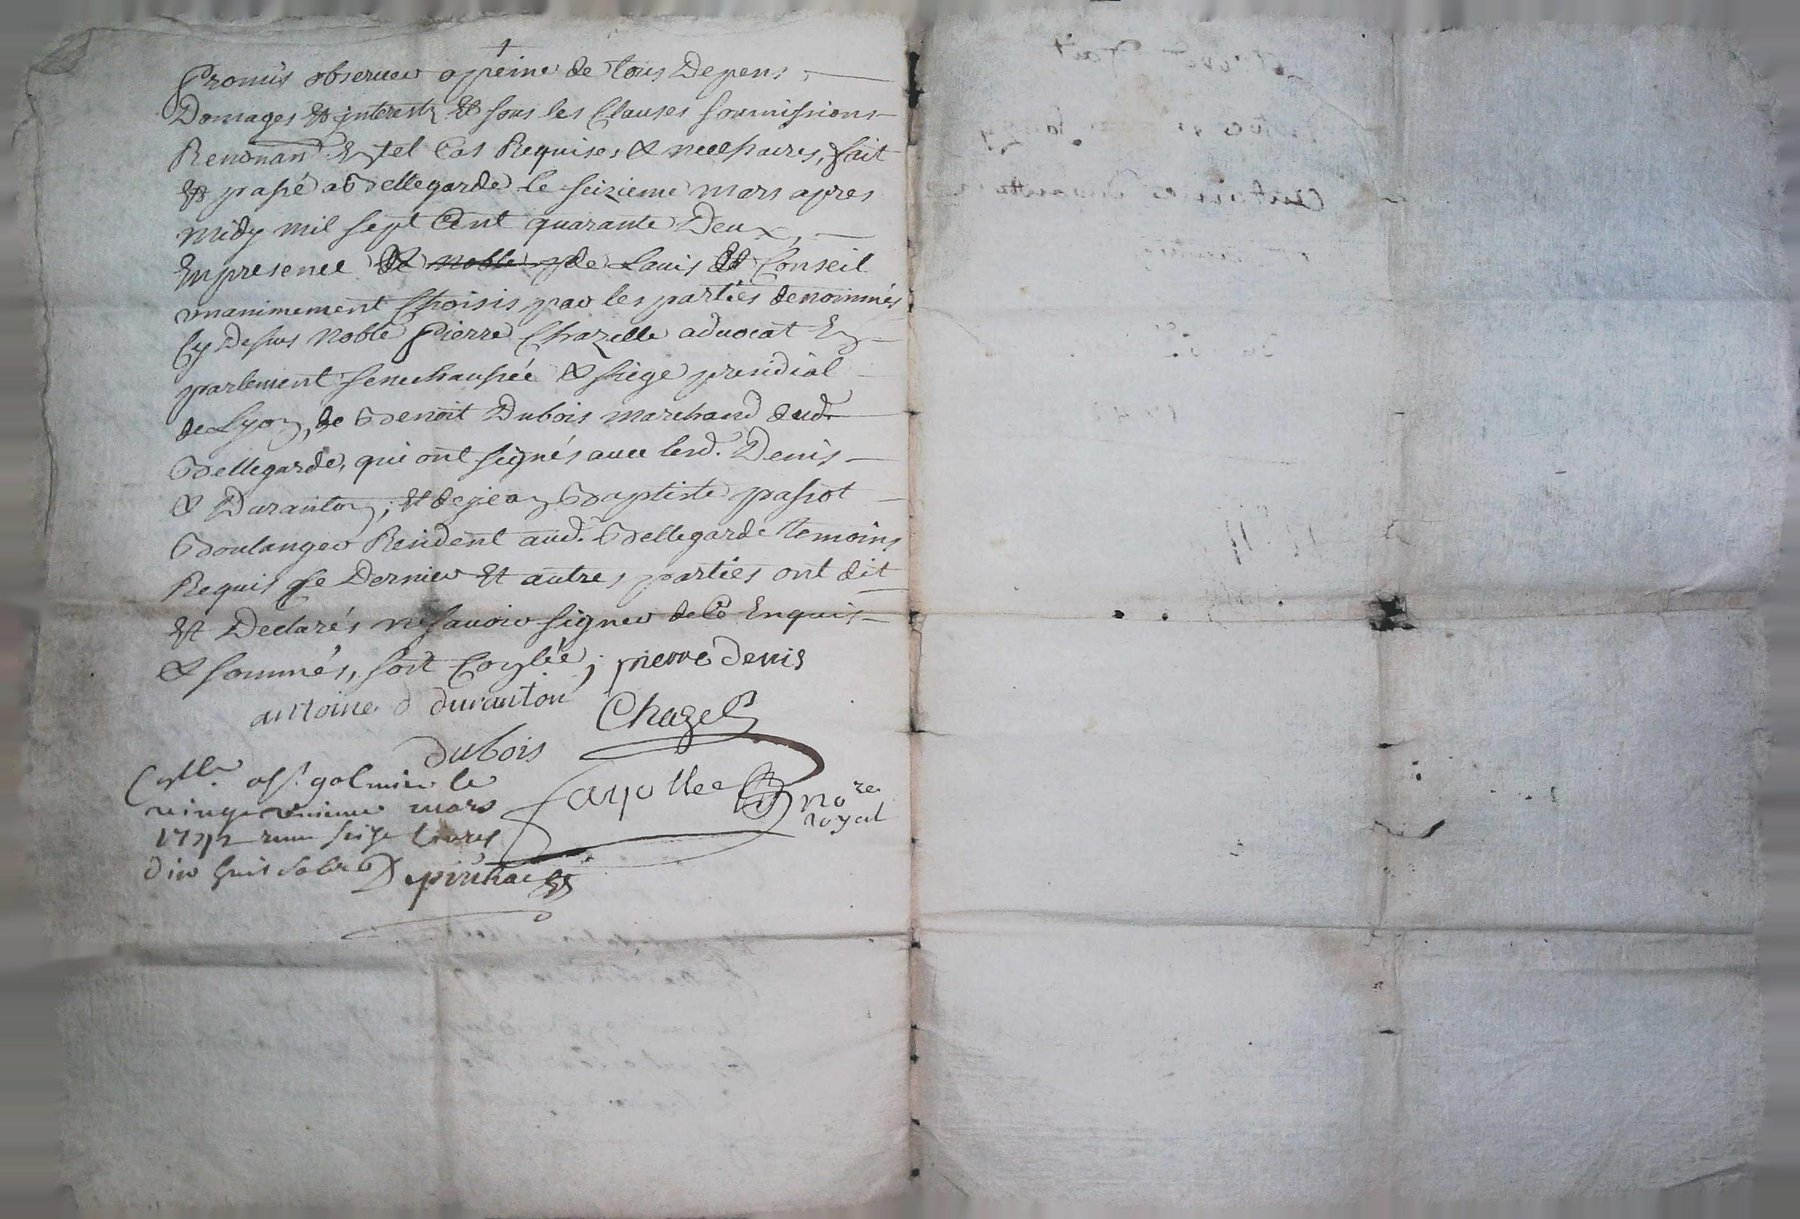 Promis observer a peine de tous Depens,
Domages et interests et sous les Clauses soumissions
Renonan.^s En tel Cas Requises & necessaires, fait
et passé a Bellegarde le seizieme mars apres
midy mil sept Cent quarante Deux,
En presence de noble de Lavis et Conseil
unanimement Choisis par les parties denommés
Cy Dessus Noble Pierre Chazelle advocat En
parlement senechaussée & siege presidial
de Lyon, de Benoit Dubois marchand dud.
Bellegarde, qui ont signés avec lesd. Denis
& Duranton, et de jean Baptiste passot
Boulanger Resident aud. Bellegarde temoins
Requis Le Dernier et autres parties ont dit
et Declarés ne savoir signer de Ce Enquis
& sommés, soit Coñlée; pierre denis
antoine duranton Chazel
dubois
Cõllé a S.^t galmier le
mars Fayolle no^re
1742 seize livres royal
Dix huit sols